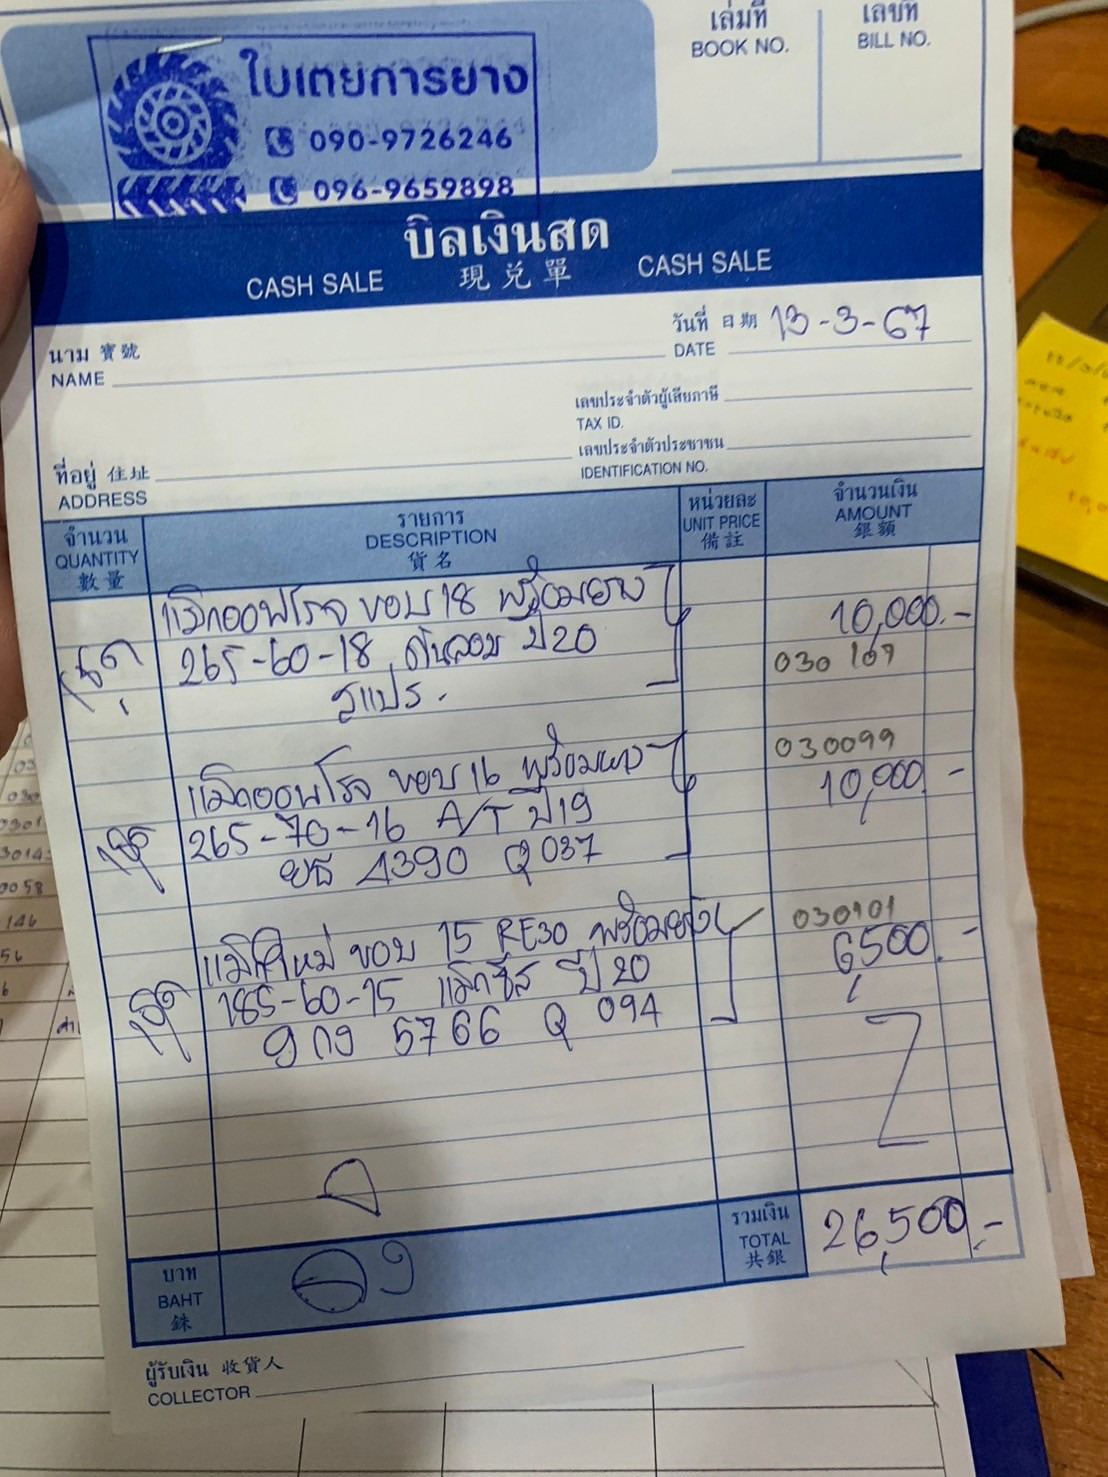 ใบเตยการยาง
090-9726246
096-9659898
เล่มที่
BOOK NO.
เลขที่
BILL NO.
บิลเงินสด
CASH SALE 現兌單 CASH SALE
วันที่ 日期 13-3-67
DATE
นาม 寶號
NAME
เลขประจำตัวผู้เสียภาษี
TAX ID.
เลขประจำตัวประชาชน
IDENTIFICATION NO.
ที่อยู่ 住址
ADDRESS
จำนวน
QUANTITY
數量
รายการ
DESCRIPTION
貨名
หน่วยละ
UNIT PRICE
備註
จำนวนเงิน
AMOUNT
銀額
แม็กออฟโรจ ขอบ 18 พร้อมยาง 10,000.-
265-60-18 ดันลอป ปี 20 030 107
แม็กออฟโรจ ขอบ 16 พร้อมยาง 030099
265-70-16 A/T ปี 19 10,000.-
ยธ 4390 Q 037
แม็กใหม่ ขอบ 15 RE30 พร้อมยาง 030101
185-60-15 แม็กซีส ปี 20 6,500.-
5766 Q 094
รวมเงิน
TOTAL
共銀
26,500.-
บาท
BAHT
銖
ผู้รับเงิน 收貨人
COLLECTOR